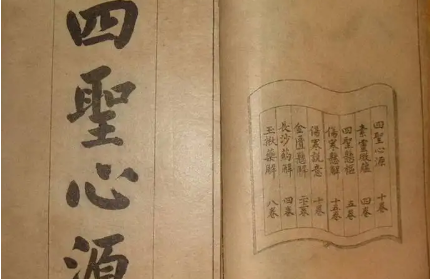 四聖心源
四聖心源 十卷
素靈微蘊 四卷
四聖懸樞 五卷
傷寒懸解 十五卷
傷寒說意 十卷
金匱懸解
長沙葯解 四卷
玉楸藥解 八卷